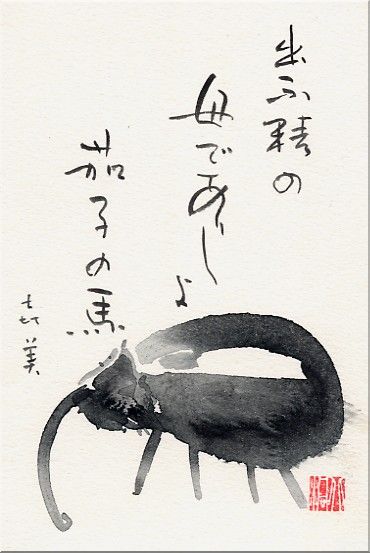 出不精の
母でありしよ
茄子の馬
喜美